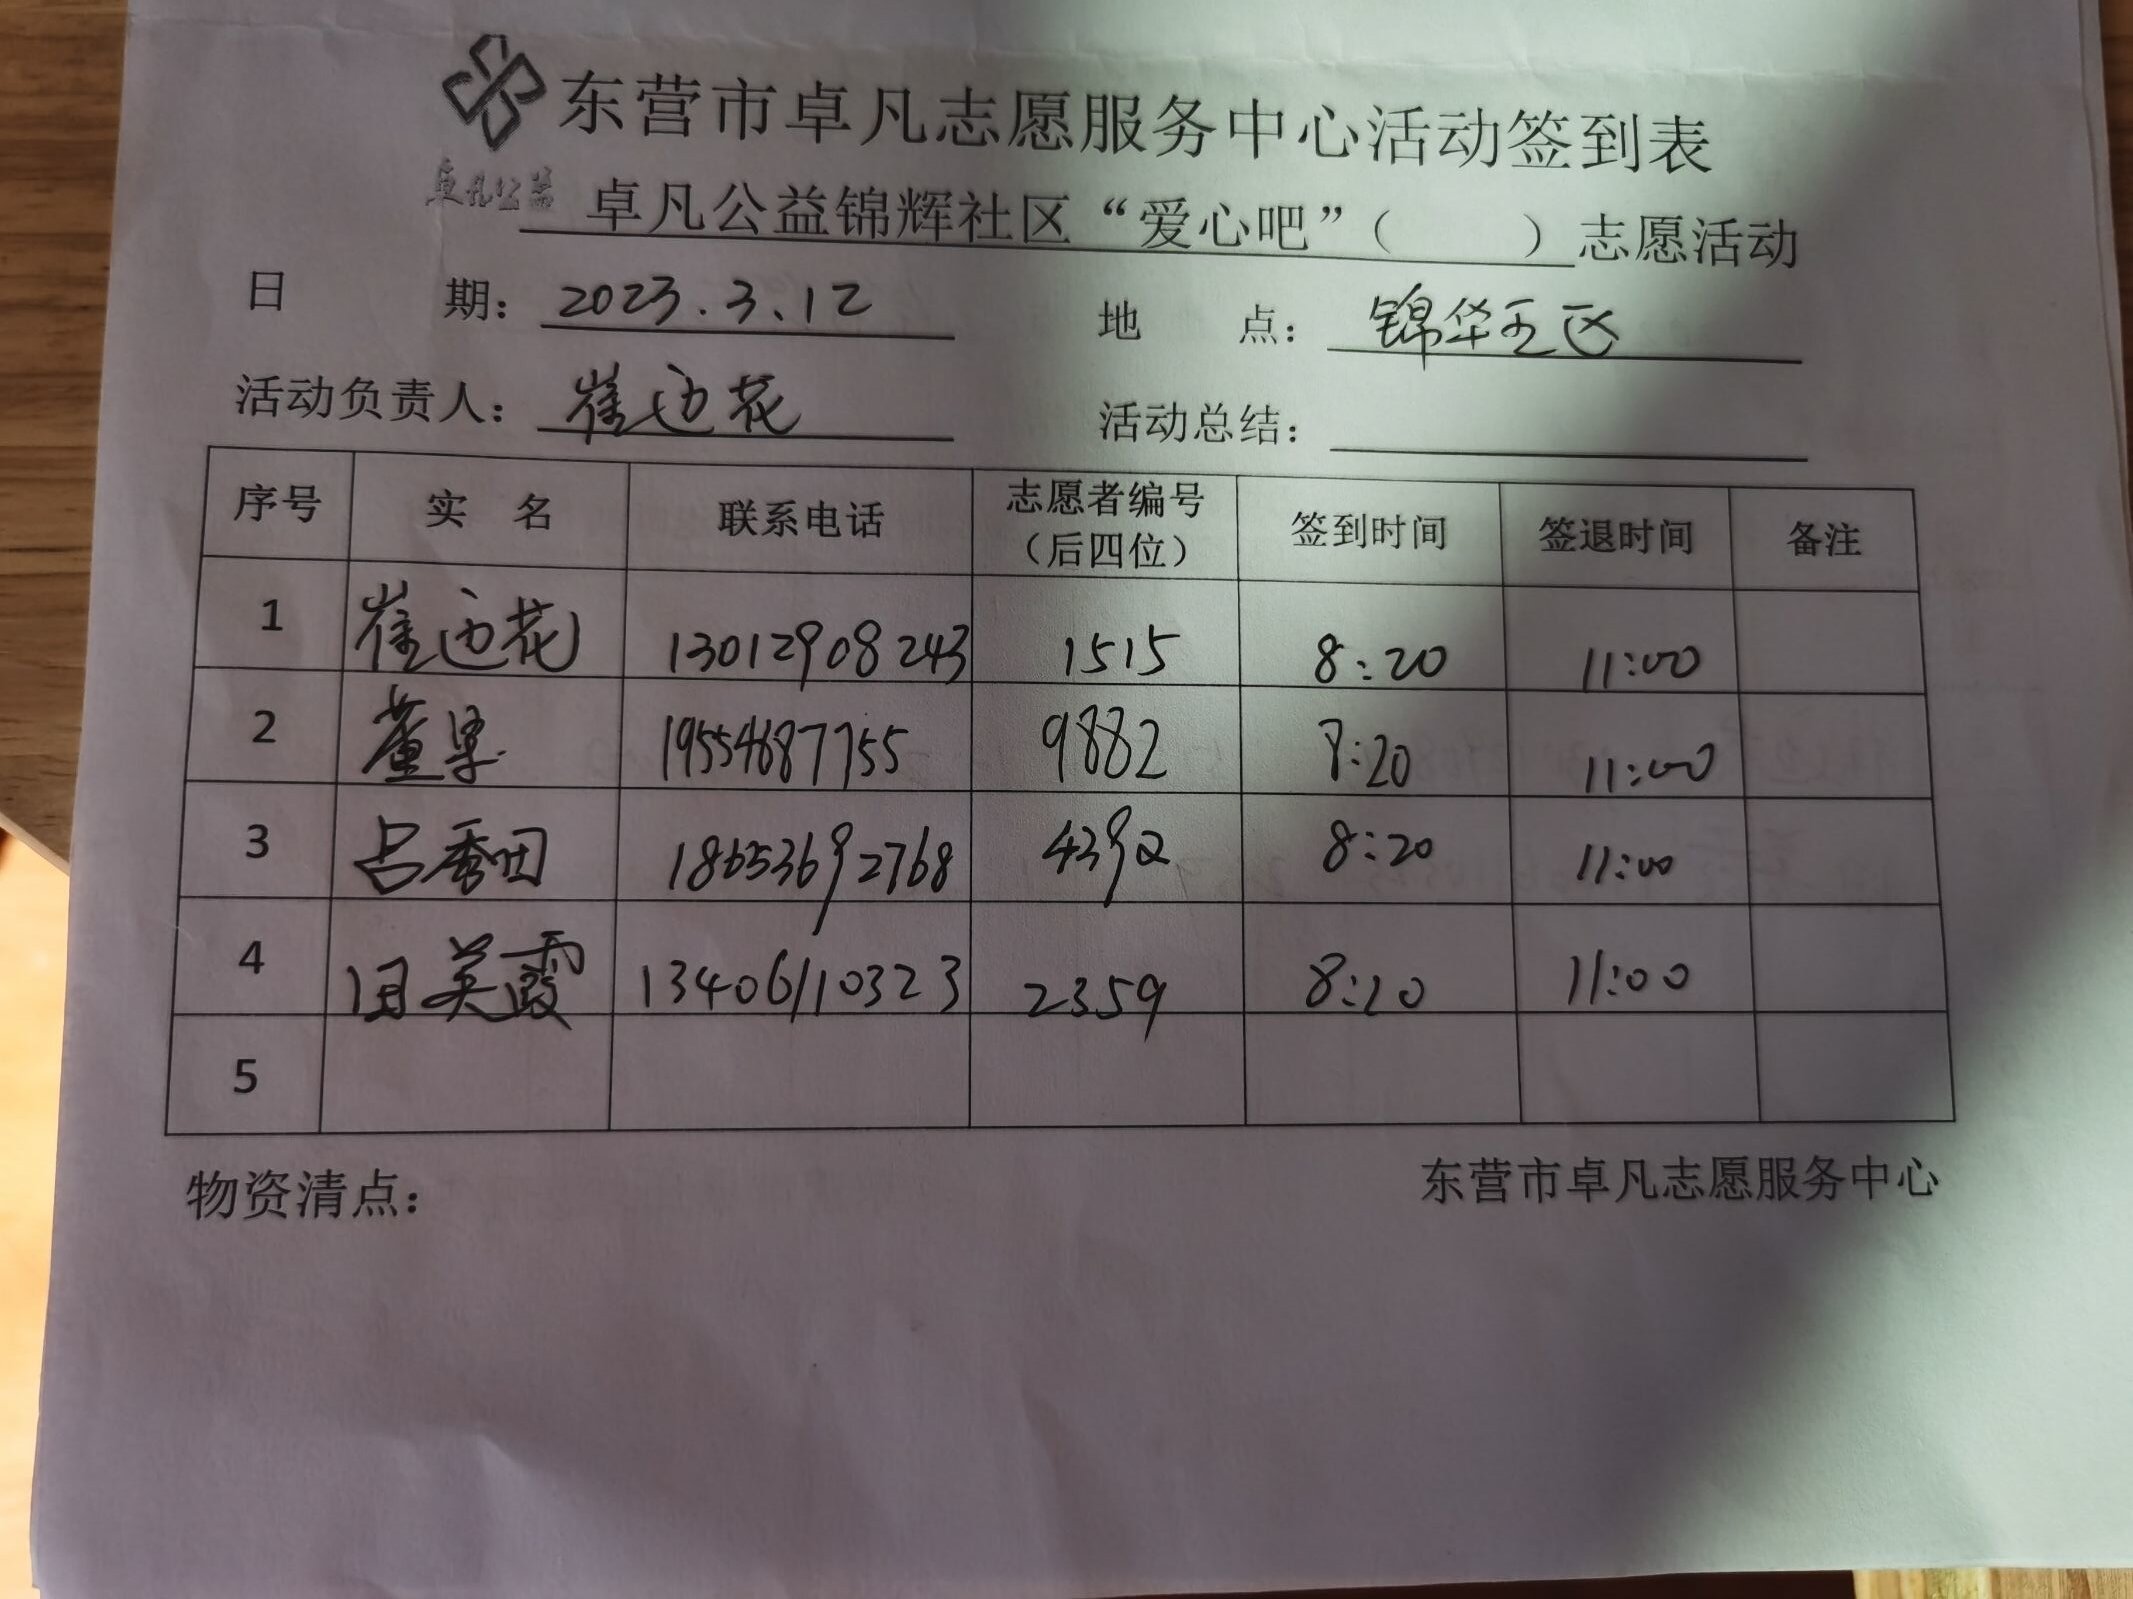 东营市卓凡志愿服务中心活动签到表
卓凡公益
卓凡公益锦辉社区“爱心吧”（ ）志愿活动
日 期： 2023.3.12 地 点： 锦华五区
活动负责人： 崔迎花 活动总结：
序号 实 名 联系电话 志愿者编号（后四位） 签到时间 签退时间 备注
1 崔迎花 13012908243 1515 8:20 11:00
2 董 19554687755 9882 8:20 11:00
3 占秀田 18653692768 4392 8:20 11:00
4 田英霞 13406110323 2359 8:20 11:00
5
物资清点： 东营市卓凡志愿服务中心